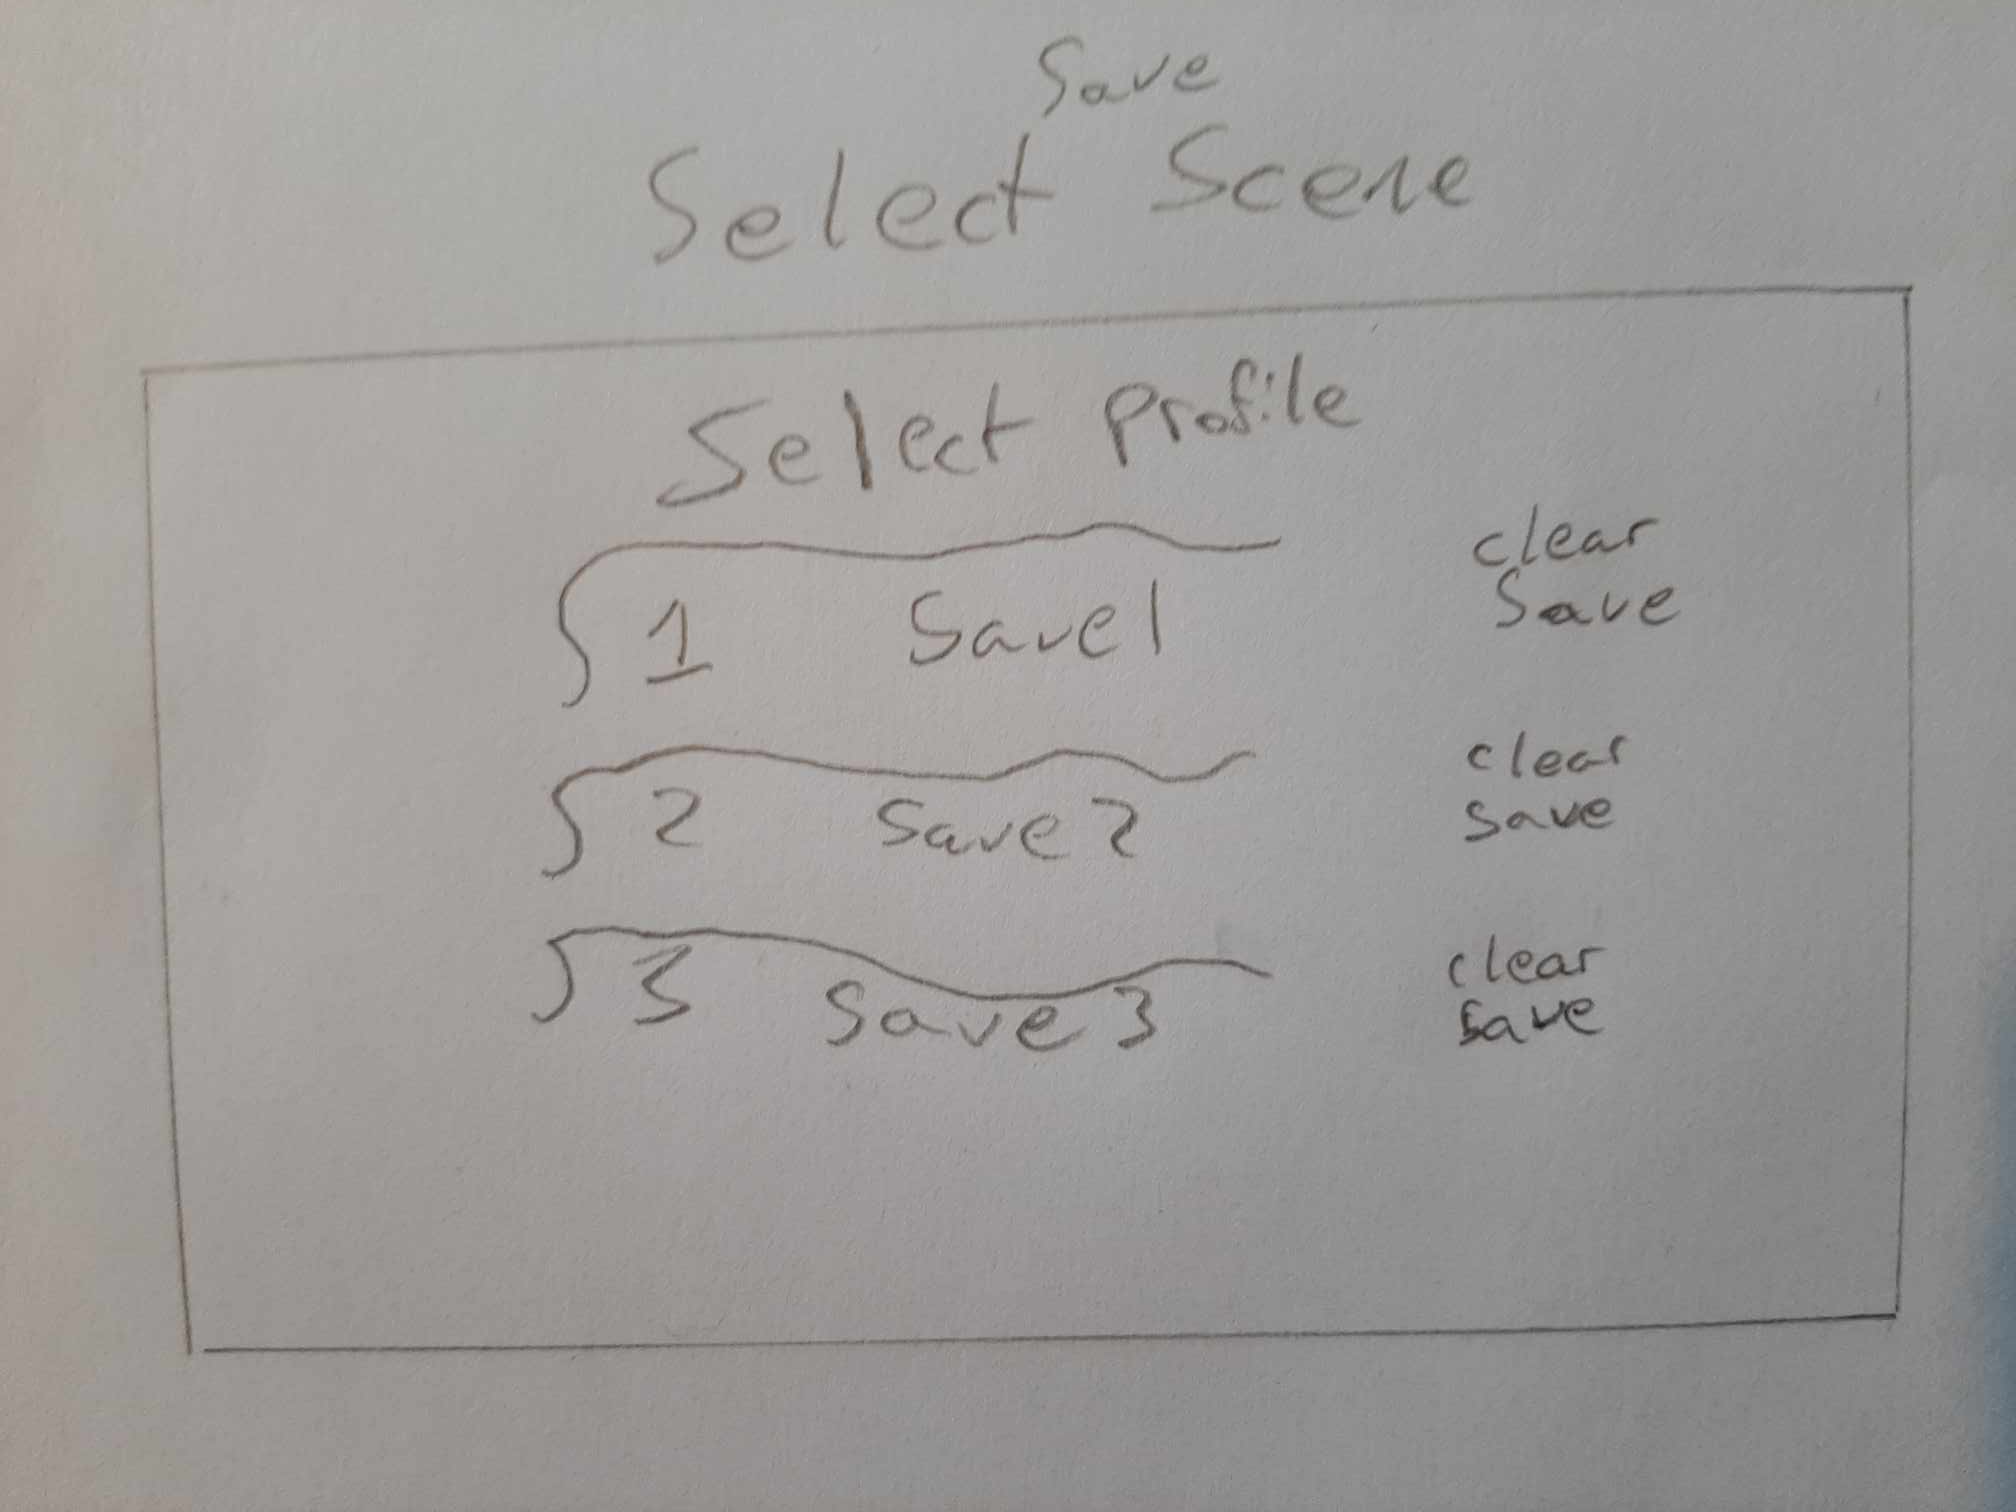 Save
Select Scene
Select Profile
1 Save1 clear
Save
2 Save2 clear
save
3 Save3 clear
save